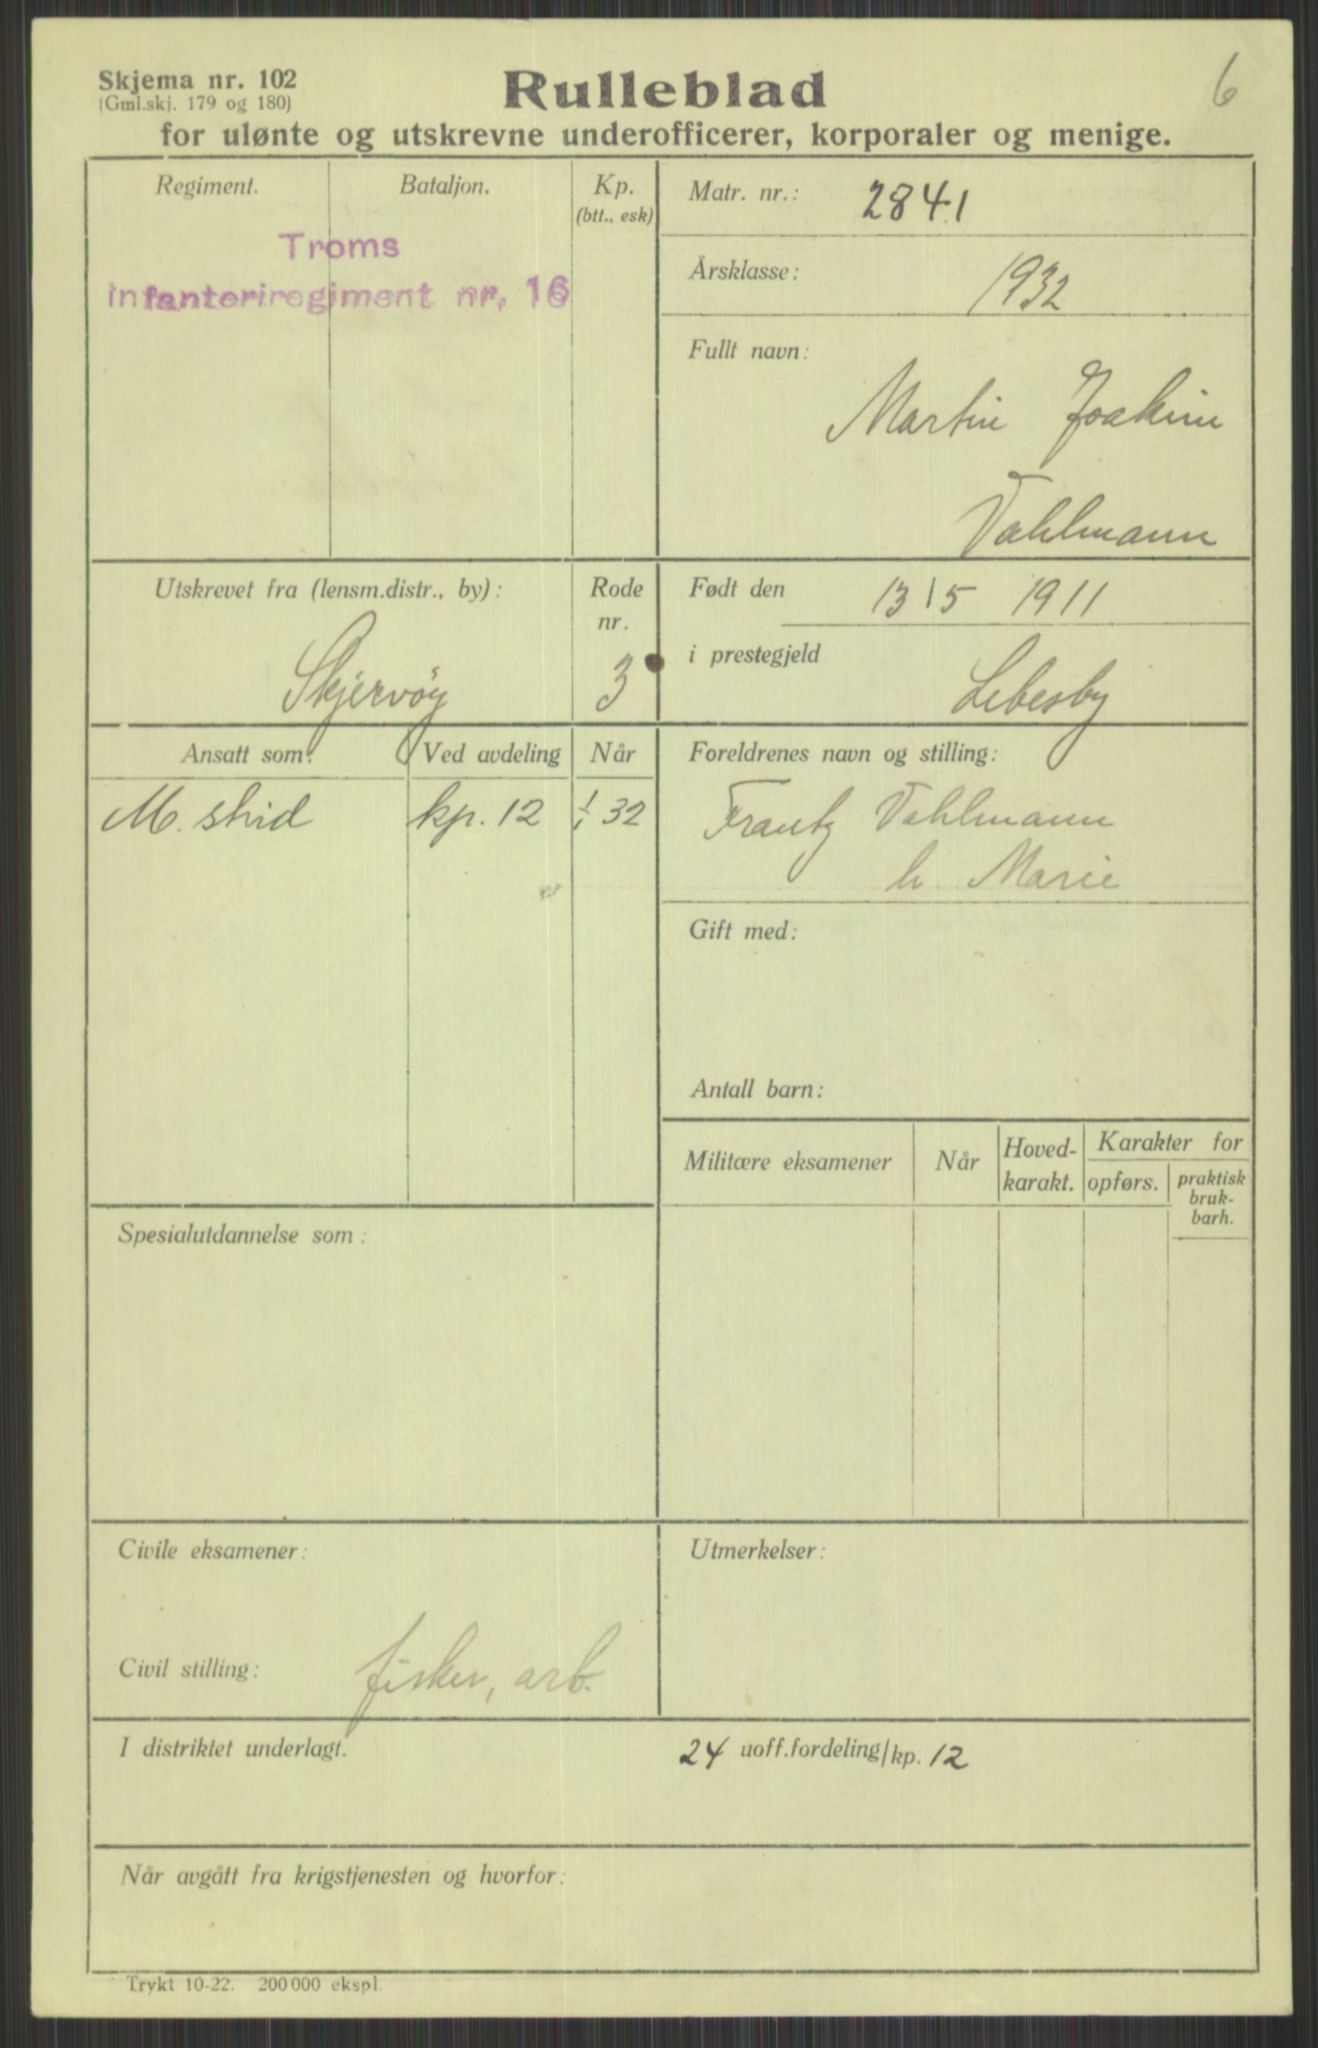 6
Skjema nr. 102
(Gml.skj. 179 og 180)
Rulleblad
for ulønte og utskrevne underofficerer, korporaler og menige.
Regiment. Bataljon. Kp. (btt., esk)
Troms
infanteriregiment nr. 16
Matr. nr.: 2841
Årsklasse: 1932
Fullt navn:
Martin Joakim
Vahlmann
Utskrevet fra (lensm.distr., by):
Skjervøy
Rode nr.
3
Født den 13/5 1911
i prestegjeld Lebesby
Ansatt som: Ved avdeling Når
M. strid kp. 12 1/1 32
Foreldrenes navn og stilling:
Frantz Vahlmann
h. Marie
Gift med:
Antall barn:
Militære eksamener Når Hoved-karakt. Karakter for
opførs. praktisk bruk-barh.
Spesialutdannelse som:
Civile eksamener:
Civil stilling: fisker, arb.
Utmerkelser:
I distriktet underlagt. 24 uoff.fordeling/kp. 12
Når avgått fra krigstjenesten og hvorfor:
Trykt 10-22. 200 000 ekspl.